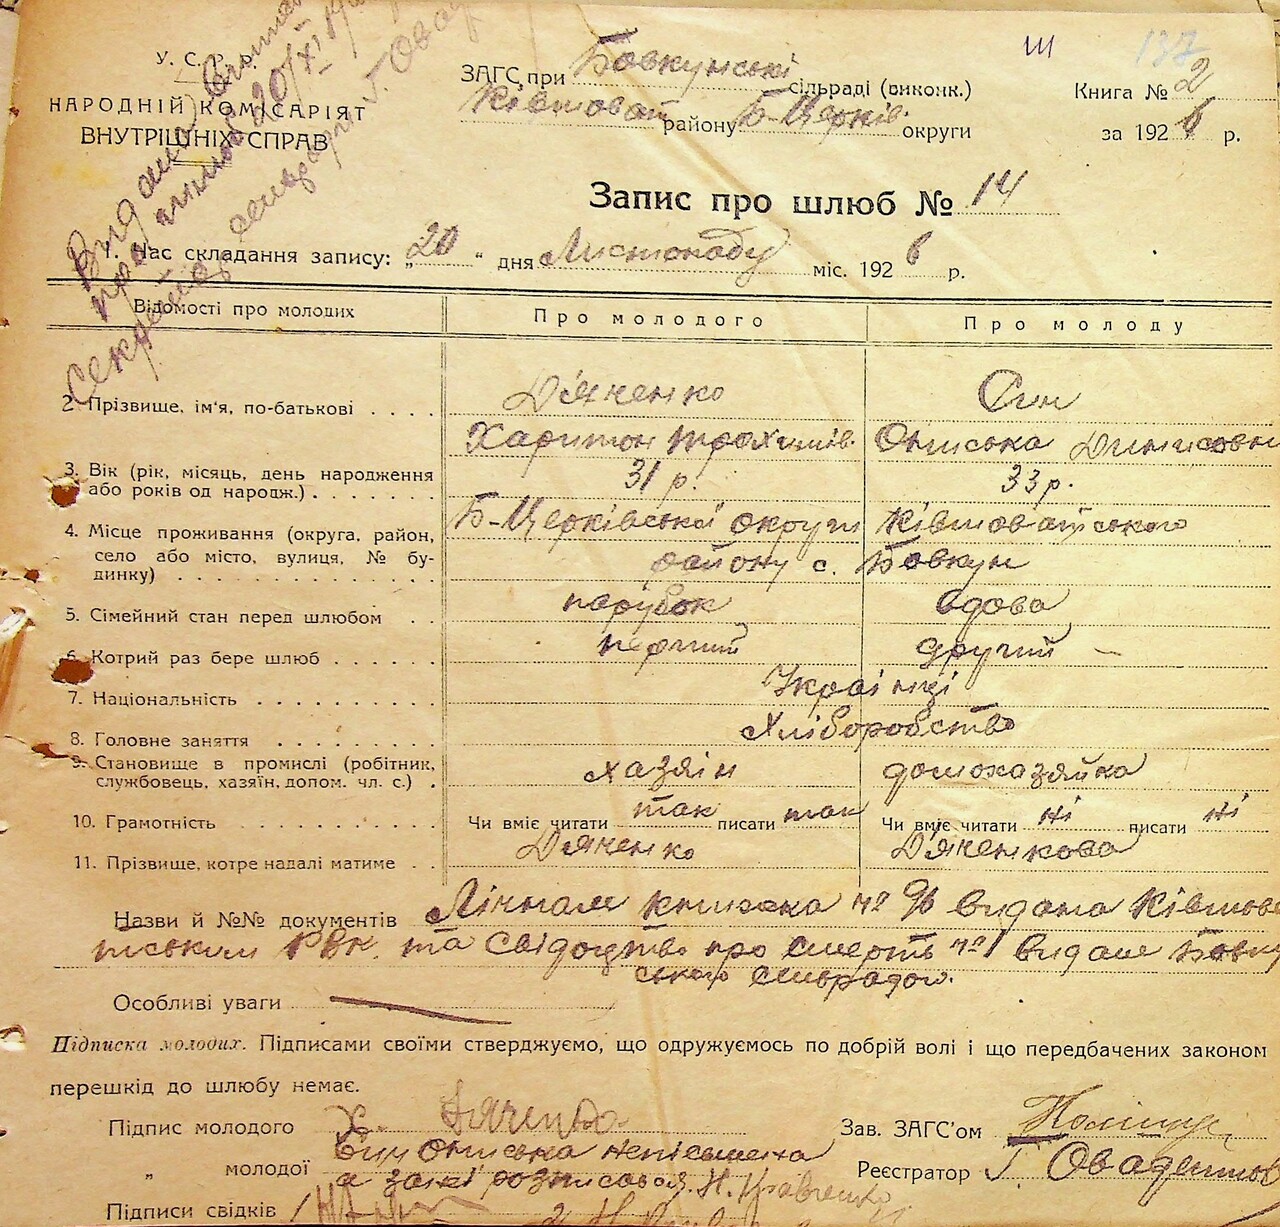 Ш 137
У. С. Р. Р.
НАРОДНІЙ КОМІСАРІЯТ
ВНУТРІШНІХ СПРАВ
Видано
про шлюб 20/XI
Секретар сільради Г. Овад
ЗАГС при Бовкунські сільраді (виконк.)
району Б-Церків. округи
Книга № 2
за 1926 р.
Запис про шлюб № 14
1. Час складання запису: „20“ дня Листопаду міс. 1926 р.
Відомості про молодих Про молодого Про молоду
2. Прізвище, ім'я, по-батькові . . . . Д'яченко
Харитон Трохимів. Ониська Динисовн
3. Вік (рік, місяць, день народження
або років од народж.) . . . . . . . 31 р. 33 р.
4. Місце проживання (округа, район,
село або місто, вулиця, № бу-
динку) . . . . . . . . . . . . . .
Б-Церківської округи Ківшоватського
району с. Бовкун
5. Сімейний стан перед шлюбом . . парубок вдова
6. Котрий раз бере шлюб . . . . . . перший другий —
7. Національність . . . . . . . . . . Українці
8. Головне заняття . . . . . . . . . Хліборобство
9. Становище в промислі (робітник,
службовець, хазяїн, допом. чл. с.) . хазяін домохазяйка
10. Грамотність . . . . . . . . . . . Чи вміє читати так писати так Чи вміє читати ні писати ні
11. Прізвище, котре надалі матиме . . Д'яченко Д'яченкова
Назви й №№ документів книжка № 96 видана Ківшова
ським РВК. та Свідоцтво про смерть № 1 Бовкун
ського сільрадою.
Особливі уваги —
Підписка молодих. Підписами своїми стверджуємо, що одружуємось по добрій волі і що передбачених законом
перешкід до шлюбу немає.
Підпис молодого Х. Дяченко
Зав. ЗАГС'ом
„ молодої Ониська неписьмена
а за розписався Н. Кравченко
Реєстратор Г. Овад
Підписи свідків